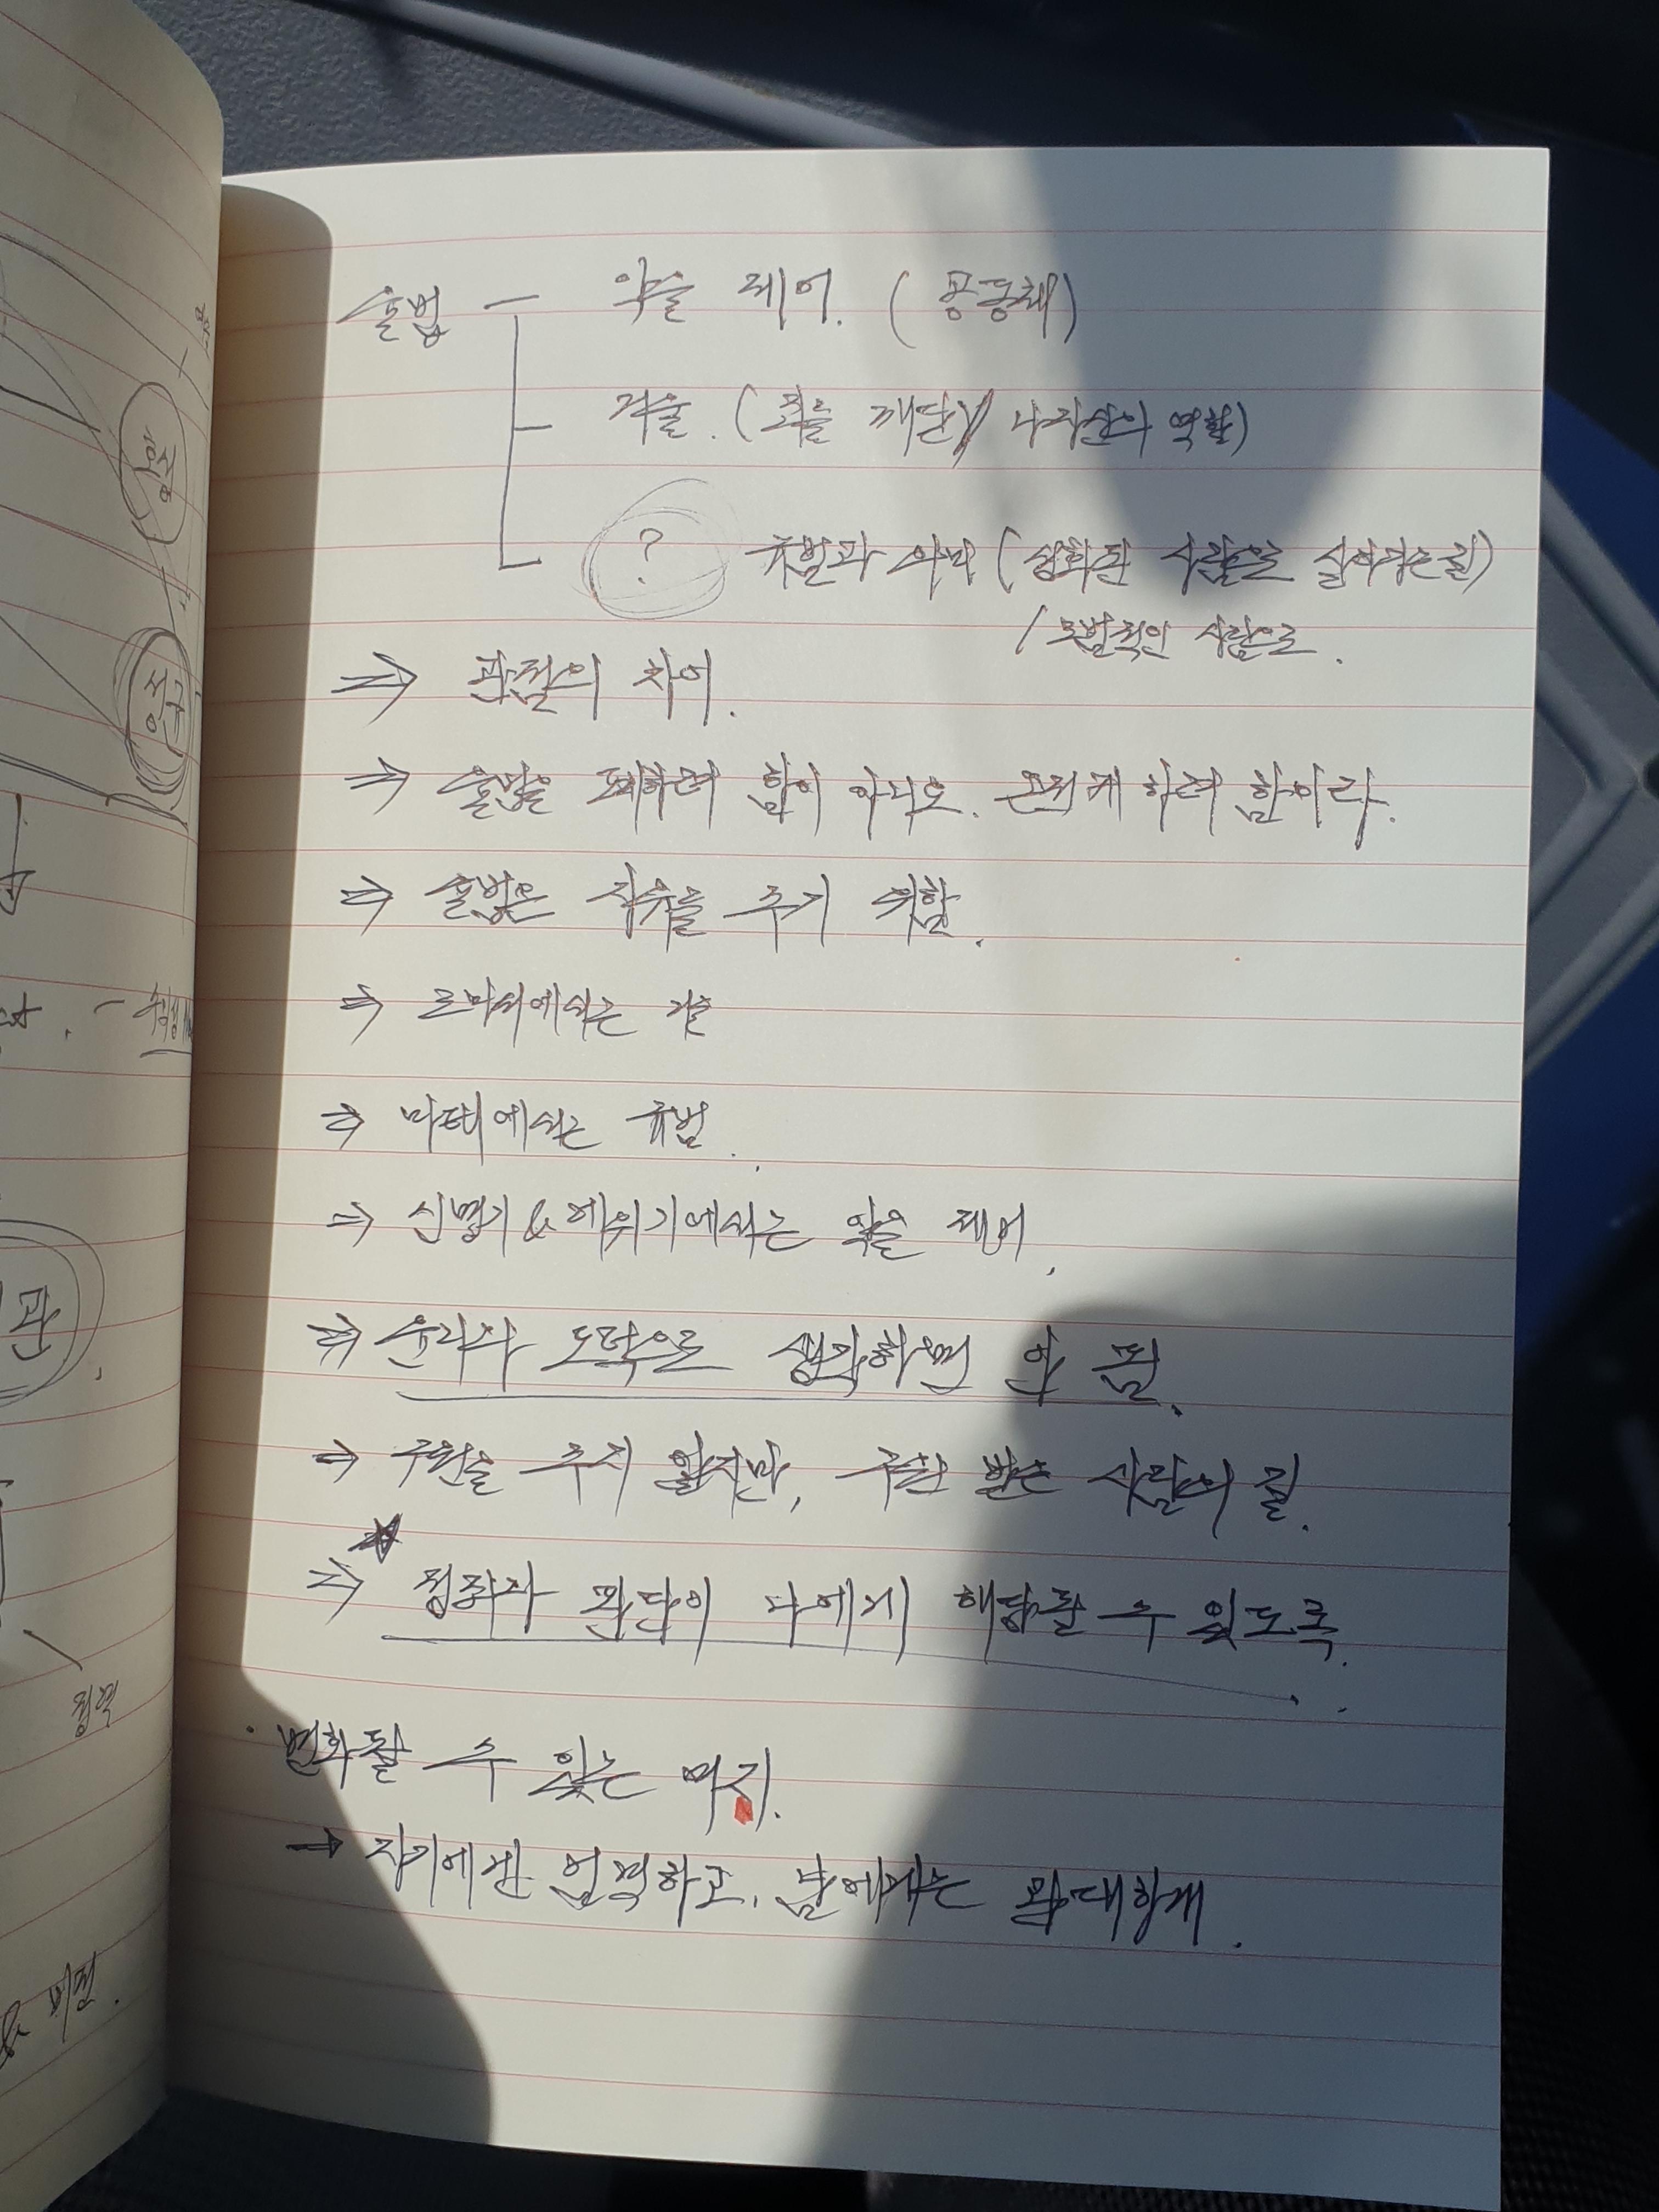 율법 - 악을 제어. (공동체)
거울. (죄를 깨닫/나 자신의 역할)
? 규범과 의미 (성화된 사람으로 살아가는 길)
/ 모범적인 사람으로.
⇒ 관점의 차이.
⇒ 율법을 폐하려 함이 아니요. 온전케 하려 함이라.
⇒ 율법은 자유를 주기 위함.
⇒ 로마서에서는 거울
⇒ 마태에서는 규범.
⇒ 신명기 & 레위기에서는 악을 제어.
⇒ 윤리와 도덕으로 생각하면 안 됨.
⇒ 구원을 주지 않지만, 구원 받은 사람의 길.
⇒ 정죄와 판단이 나에게 해당될 수 있도록.
· 변화될 수 있는 여지.
→ 자기에겐 엄격하고, 남에게는 관대하게.
항상
욕구
관
& 비전.